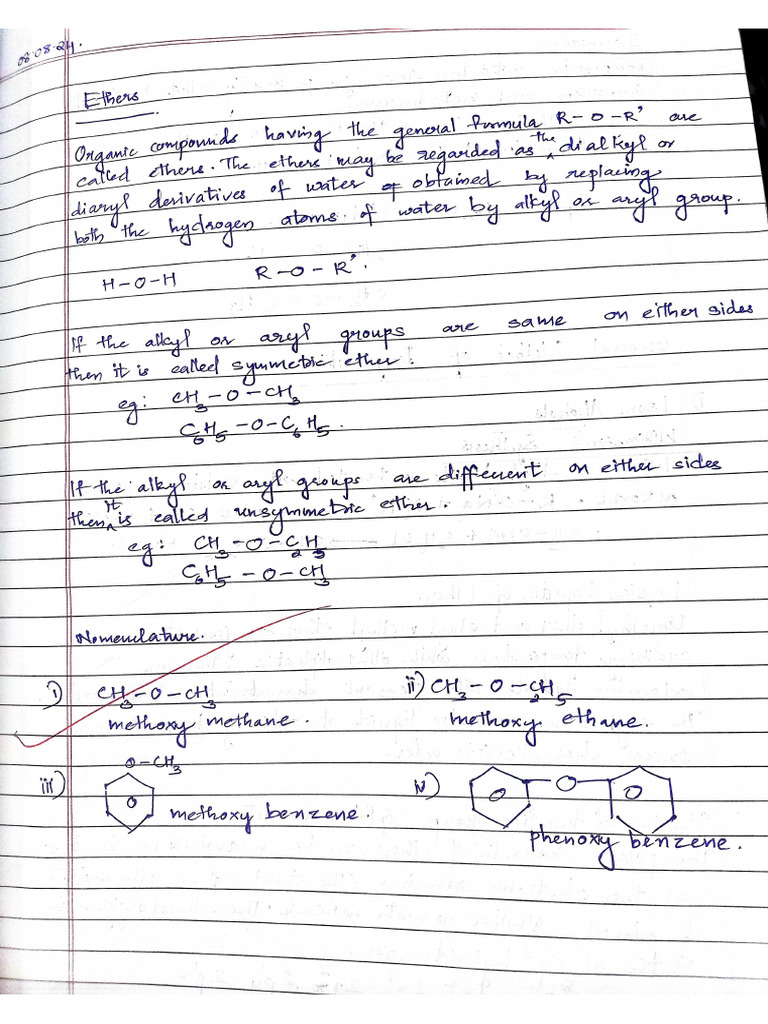 08.08.24.
Ethers
Organic compounds having the general formula R-O-R' are
called ethers. The ethers may be regarded as the dialkyl or
diaryl derivatives of water obtained by replacing
both the hydrogen atoms of water by alkyl or aryl group.
H-O-H R-O-R'.
If the alkyl or aryl groups are same on either sides
then it is called symmetric ether.
eg: CH3-O-CH3
C6H5-O-C6H5.
If the alkyl or aryl groups are different on either sides
then it is called unsymmetric ether.
eg: CH3-O-C2H5
C6H5-O-CH3
Nomenclature.
i) CH3-O-CH3 ii) CH3-O-C2H5
methoxy methane. methoxy ethane.
O-CH3
iii) methoxy benzene. iv) O
phenoxy benzene.